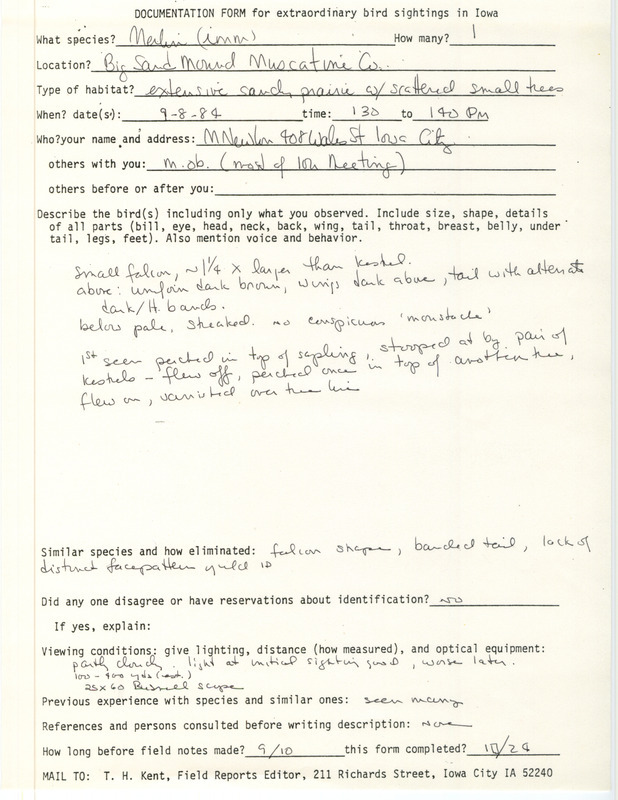 DOCUMENTATION FORM for extraordinary bird sightings in Iowa
What species? Merlin (imm) How many? 1
Location? Big Sand Mound Muscatine Co.
Type of habitat? extensive sand prairie w/ scattered small trees
When? date(s): 9-8-84 time: 130 to 140 PM
Who?your name and address: M Newlon 408 Wales St Iowa City
others with you: m.ob. (most of IOU Meeting)
others before or after you:
Describe the bird(s) including only what you observed. Include size, shape, details
of all parts (bill, eye, head, neck, back, wing, tail, throat, breast, belly, under
tail, legs, feet). Also mention voice and behavior.
Small falcon, ~ 1 1/4 x larger than kestrel.
above: uniform dark brown, wings dark above, tail with alternate
dark/lt. bands.
below pale, streaked. no conspicuous 'moustache'
1st seen perched in top of sapling, stooped at by pair of
kestrels - flew off, perched once in top of another tree,
flew on, vanished over tree line
Similar species and how eliminated: falcon shape, banded tail, lack of
distinct face pattern yield ID
Did any one disagree or have reservations about identification? no
If yes, explain:
Viewing conditions: give lighting, distance (how measured), and optical equipment:
partly cloudy. light at initial sighting good, worse later.
100 - 400 yds (est.)
25x60 Bushnell scope
Previous experience with species and similar ones: seen many
References and persons consulted before writing description: None
How long before field notes made? 9/10 this form completed? 10/24
MAIL TO: T. H. Kent, Field Reports Editor, 211 Richards Street, Iowa City IA 52240